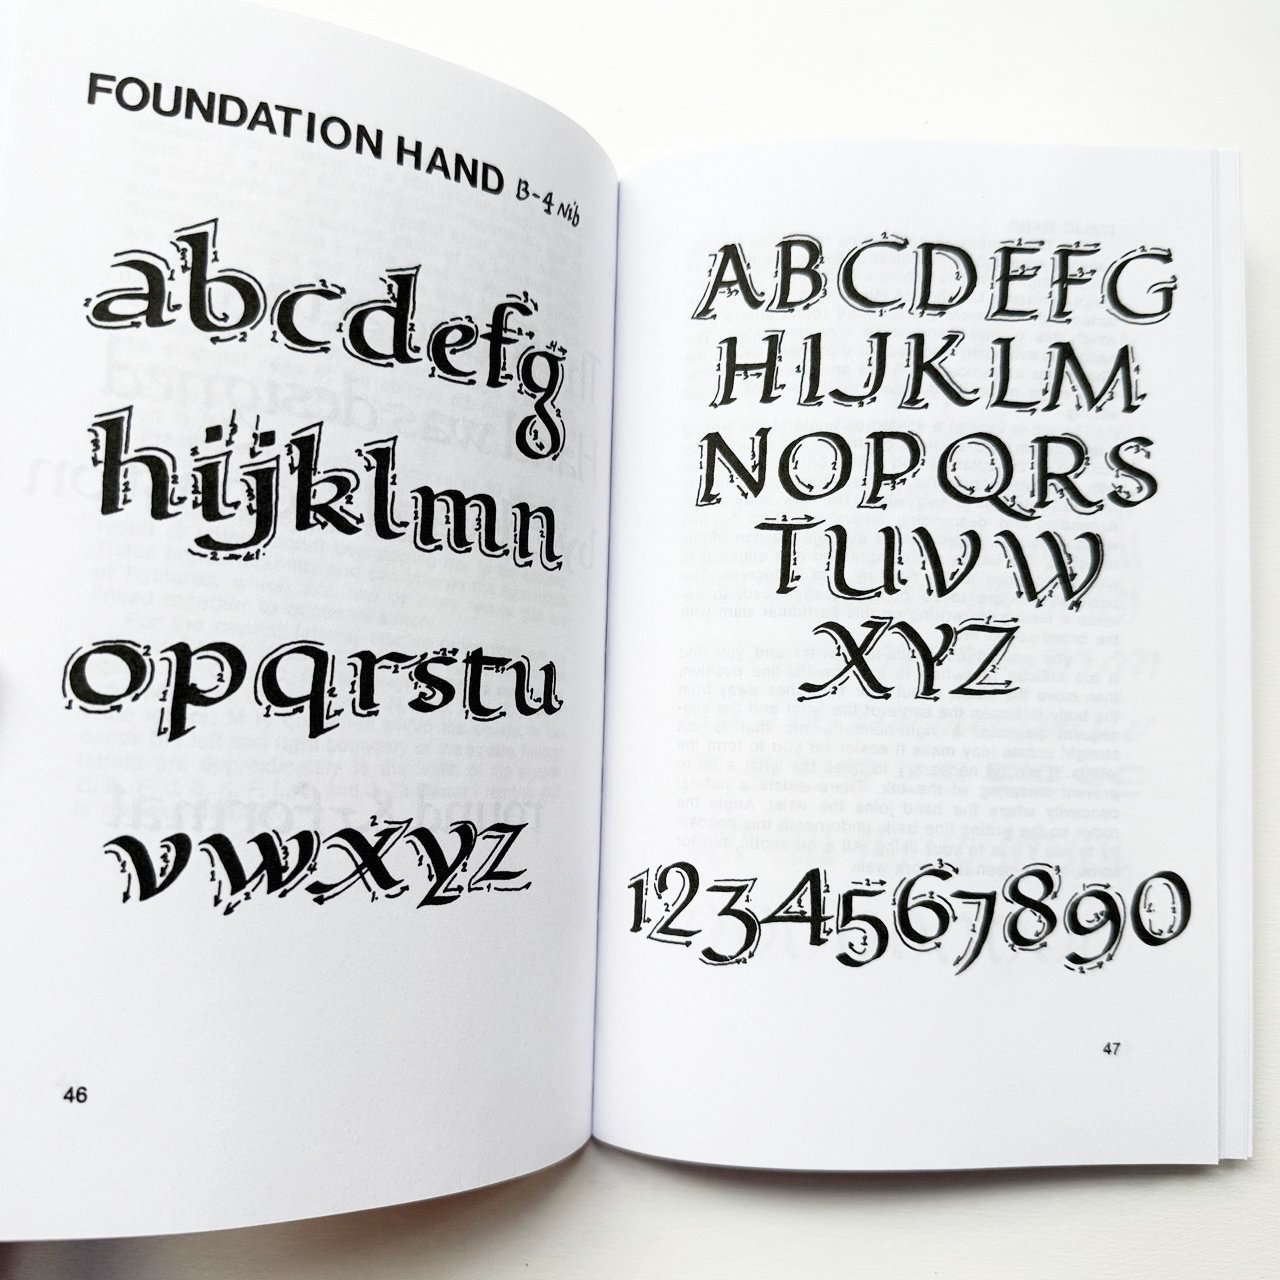 FOUNDATION HAND B-4 Nib
abcdefg
hijklmn
opqrstu
vwxyz
46
ABCDEFG
HIJKLM
NOPQRS
TUVW
XYZ
1234567890
47